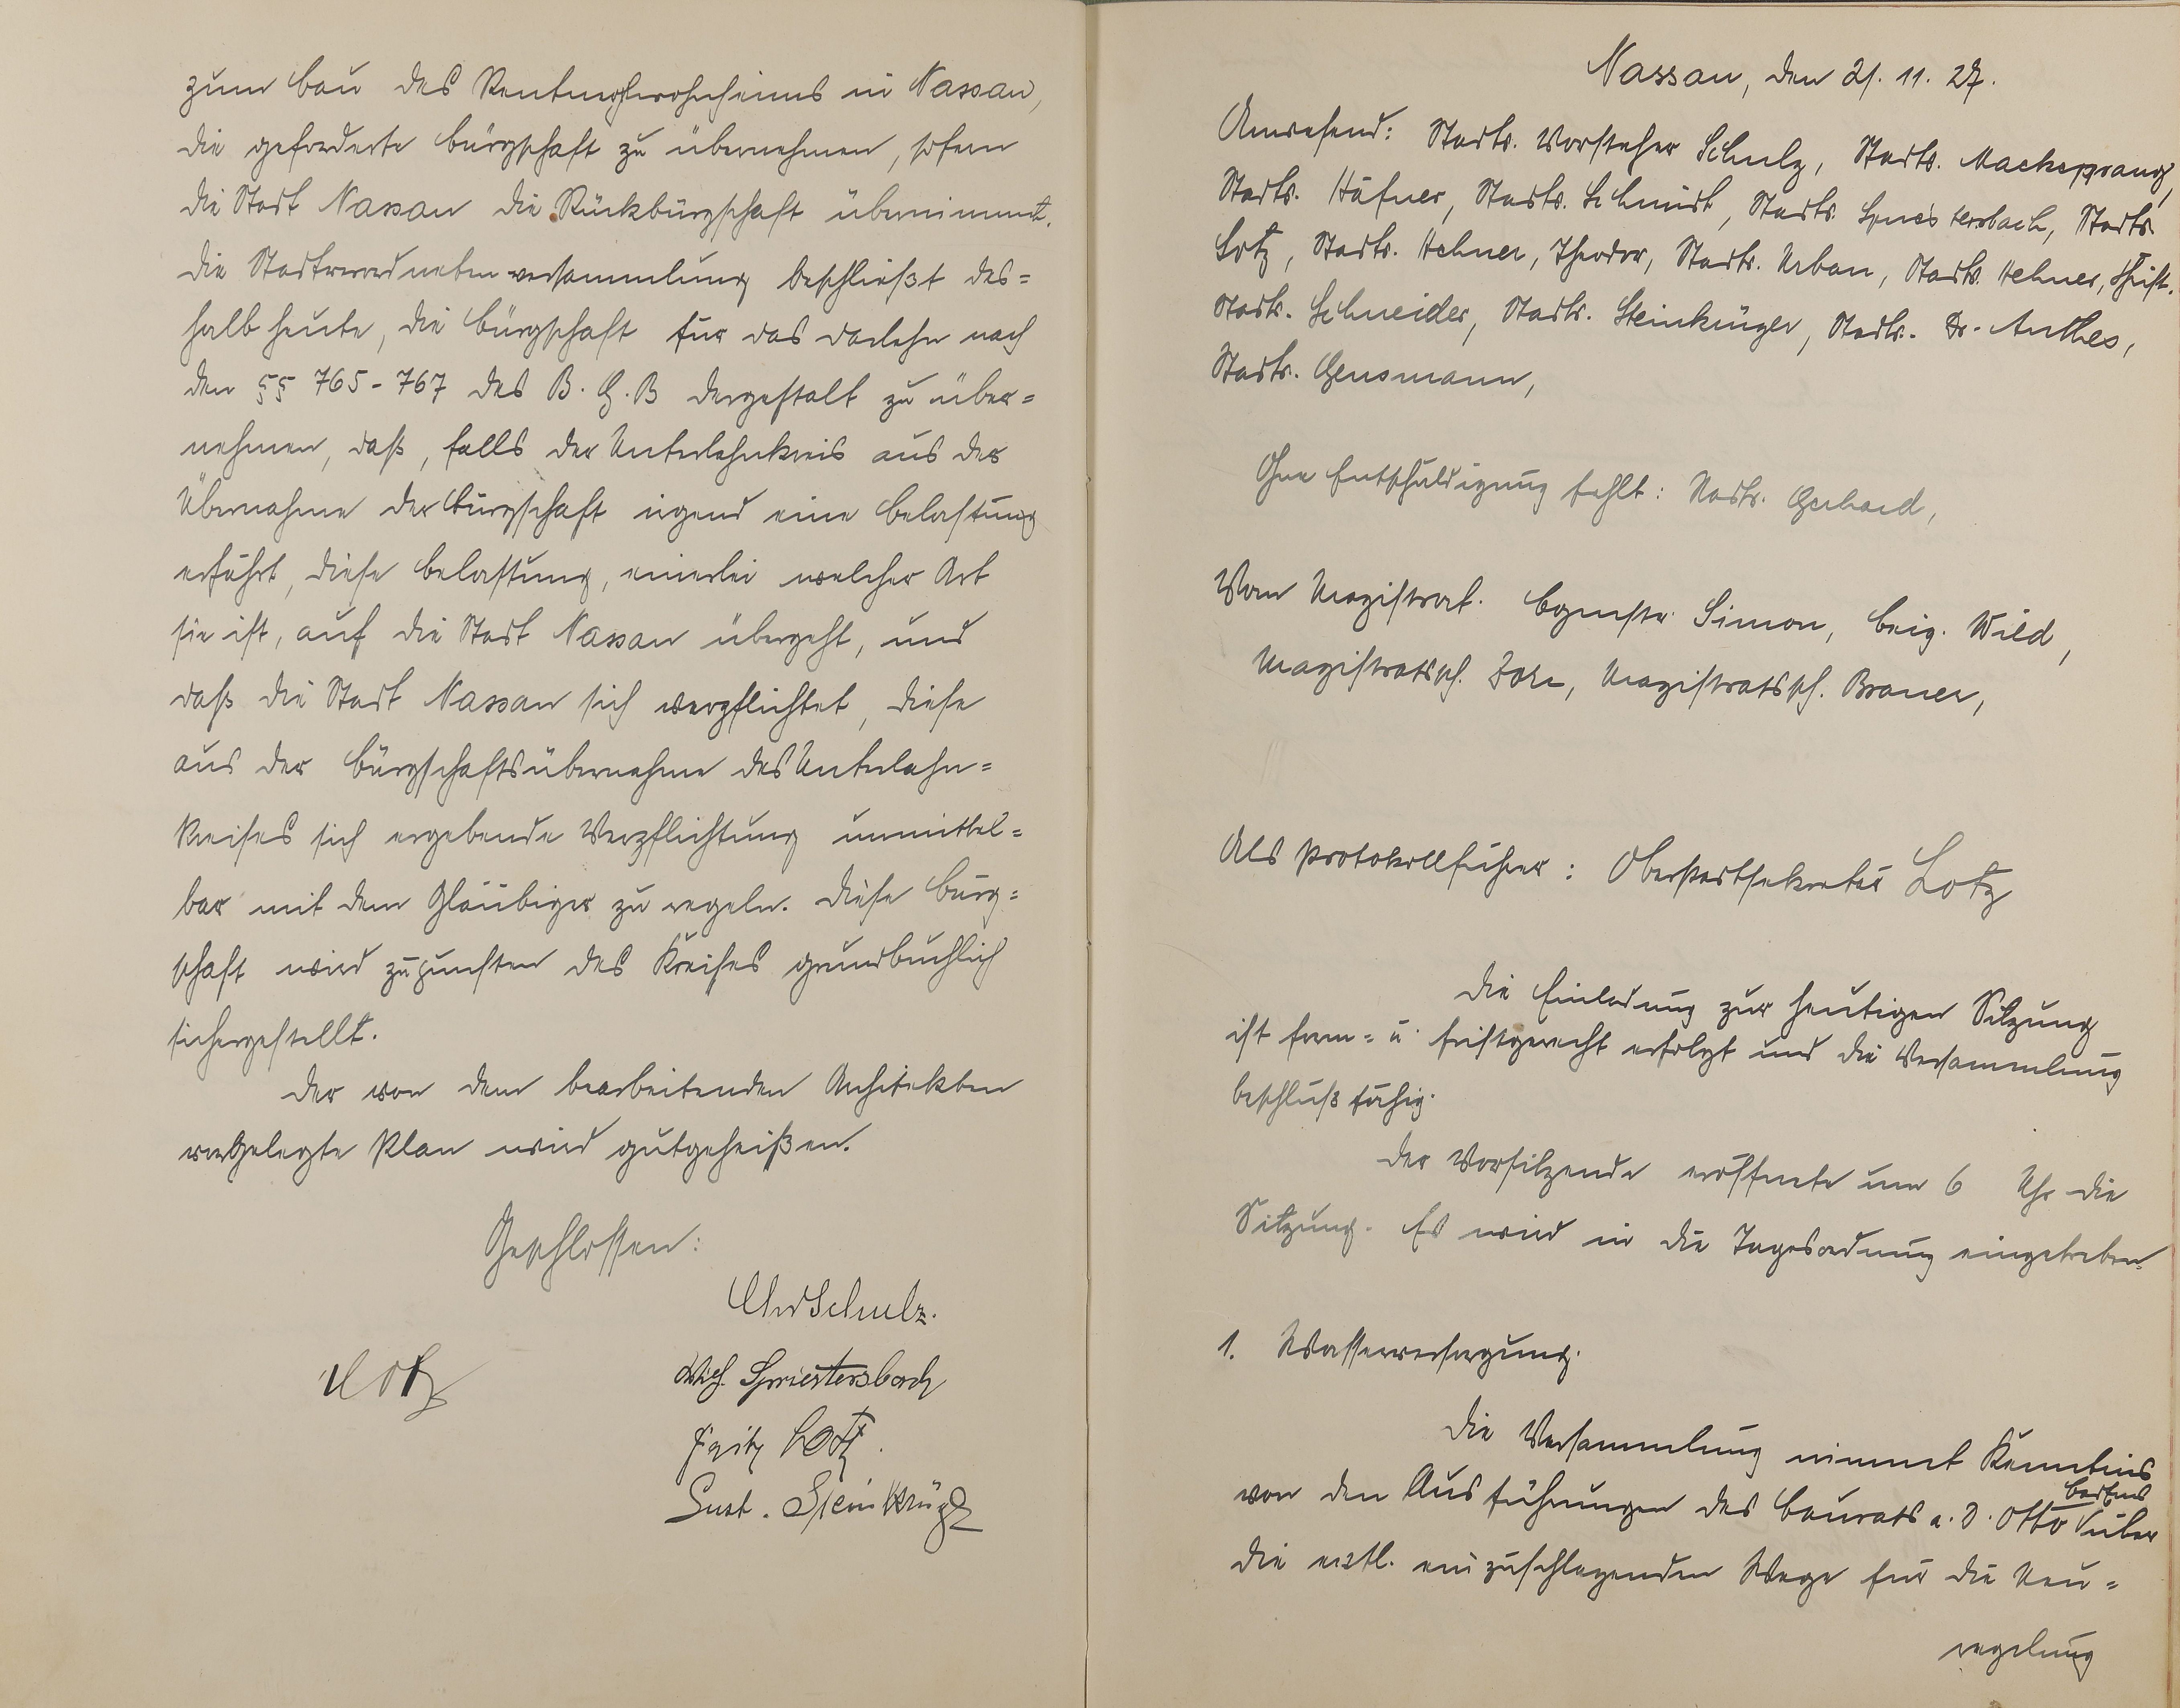 zum Bau des Rentnerwohnheims in Nassau,
die geforderte Bürgschaft zu übernehmen, sofern
die Stadt Nassau die Rückbürgschaft übernimmt.
Die Stadtverordnetenversammlung beschließt des=
halb heute, die Bürgschaft für das Darlehn nach
den §§ 765-767 des B.G.B dergestalt zu über=
nehmen, daß, falls der Unterlahnkreis aus der
Übernahme der Bürgschaft irgend eine Belastung
erfährt, diese Belastung, einerlei welcher Art
sie ist, auf die Stadt Nassau übergeht, und
daß die Stadt Nassau sich verpflichtet, diese
aus der Bürgschaftsübernahme des Unterlahn=
kreises sich ergebende Verpflichtung unmittel=
bar mit dem Gläubiger zu regeln. Diese Bürg=
schaft wird zugunsten des Kreises grundbuchlich
sichergestellt.
Der von dem bearbeitenden Architekten
vorgelegte Plan wird gutgeheißen.
Geschlossen:
Schulz.
Spriestersbach
Lotz
Fritz Lotz.
Gust. Steinkrüger
Nassau, den 21. 11. 27.
Anwesend: Stadtv. Vorsteher Schulz, Stadtv. Mackeprang,
Stadtv. Häfner, Stadtv. Schmidt, Stadtv. Spriestersbach, Stadtv.
Lotz, Stadtv. Hehner, Theodor, Stadtv. Urban, Stadtv. Hehner, Christ.
Stadtv. Schneider, Stadtv. Steinkrüger, Stadtv. Dr. Anthes,
Stadtv. Gensmann,
Ohne Entschuldigung fehlt: Stadtv. Gerhard,
Vom Magistrat. Bgmstr. Simon, Beig. Wild,
Magistratssch. , Magistratssch. Brauer,
Als Protokollführer: Oberstadtsekretär Lotz
Die Einladung zur heutigen Sitzung
ist form= u. fristgerecht erfolgt und die Versammlung
beschlußfähig.
Der Vorsitzende eröffnete um 6 Uhr die
Sitzung. Es wird in die Tagesordnung eingetreten.
1. Wasserversorgung.
Die Versammlung nimmt Kenntnis
von den Ausführungen des Baurats a. D. Otto über
die evtl. einzuschlagenden Wege für die Neu=
regelung